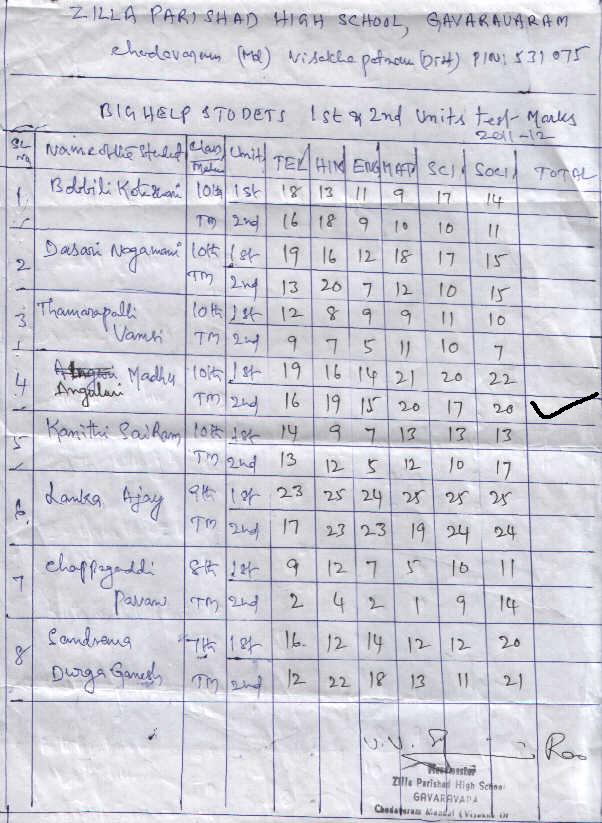 ZILLA PARISHAD HIGH SCHOOL, GAVARAVARAM
Chodavaram (Md) Visakhapatnam (Dist) PIN: 531075
BIGHELP STUDETS 1st & 2nd Units Test Marks
2011-12
SL No Name of the Student Class Unit TEL HIN ENG MAT SCI SOCI TOTAL
1 Bobbili 10th 1st 18 13 11 9 17 14
TM 2nd 16 18 9 10 10 11
2 Dasari Nagamani 10th 1st 19 16 12 18 17 15
TM 2nd 13 20 7 12 10 15
3 Thamarapalli 10th 1st 12 8 9 9 11 10
Vamsi TM 2nd 9 7 5 11 10 7
4 Madhu 10th 1st 19 16 14 21 20 22
Angalari TM 2nd 16 19 15 20 17 20
5 Kamithi SaiRam 10th 1st 14 9 7 13 13 13
TM 2nd 13 12 5 12 10 17
6. Lanka Ajay 9th 1st 23 25 24 25 25 25
TM 2nd 17 23 23 19 24 24
7 Chappagaddi 8th 1st 9 12 7 5 10 11
Pavani TM 2nd 2 4 2 1 9 14
8 7th 1st 16 12 14 12 12 20
Durga Ganesh TM 2nd 12 22 18 13 11 21
V.V. Rao
Headmaster
Zilla Parishad High School
GAVARAVARA
Chodavaram Mandal